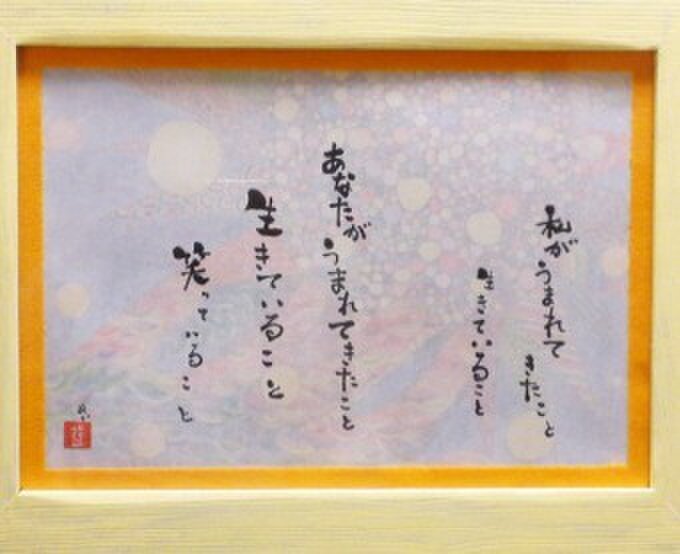 私がうまれて
きたこと
生きていること
あなたが
うまれてきたこと
生きていること
笑っていること